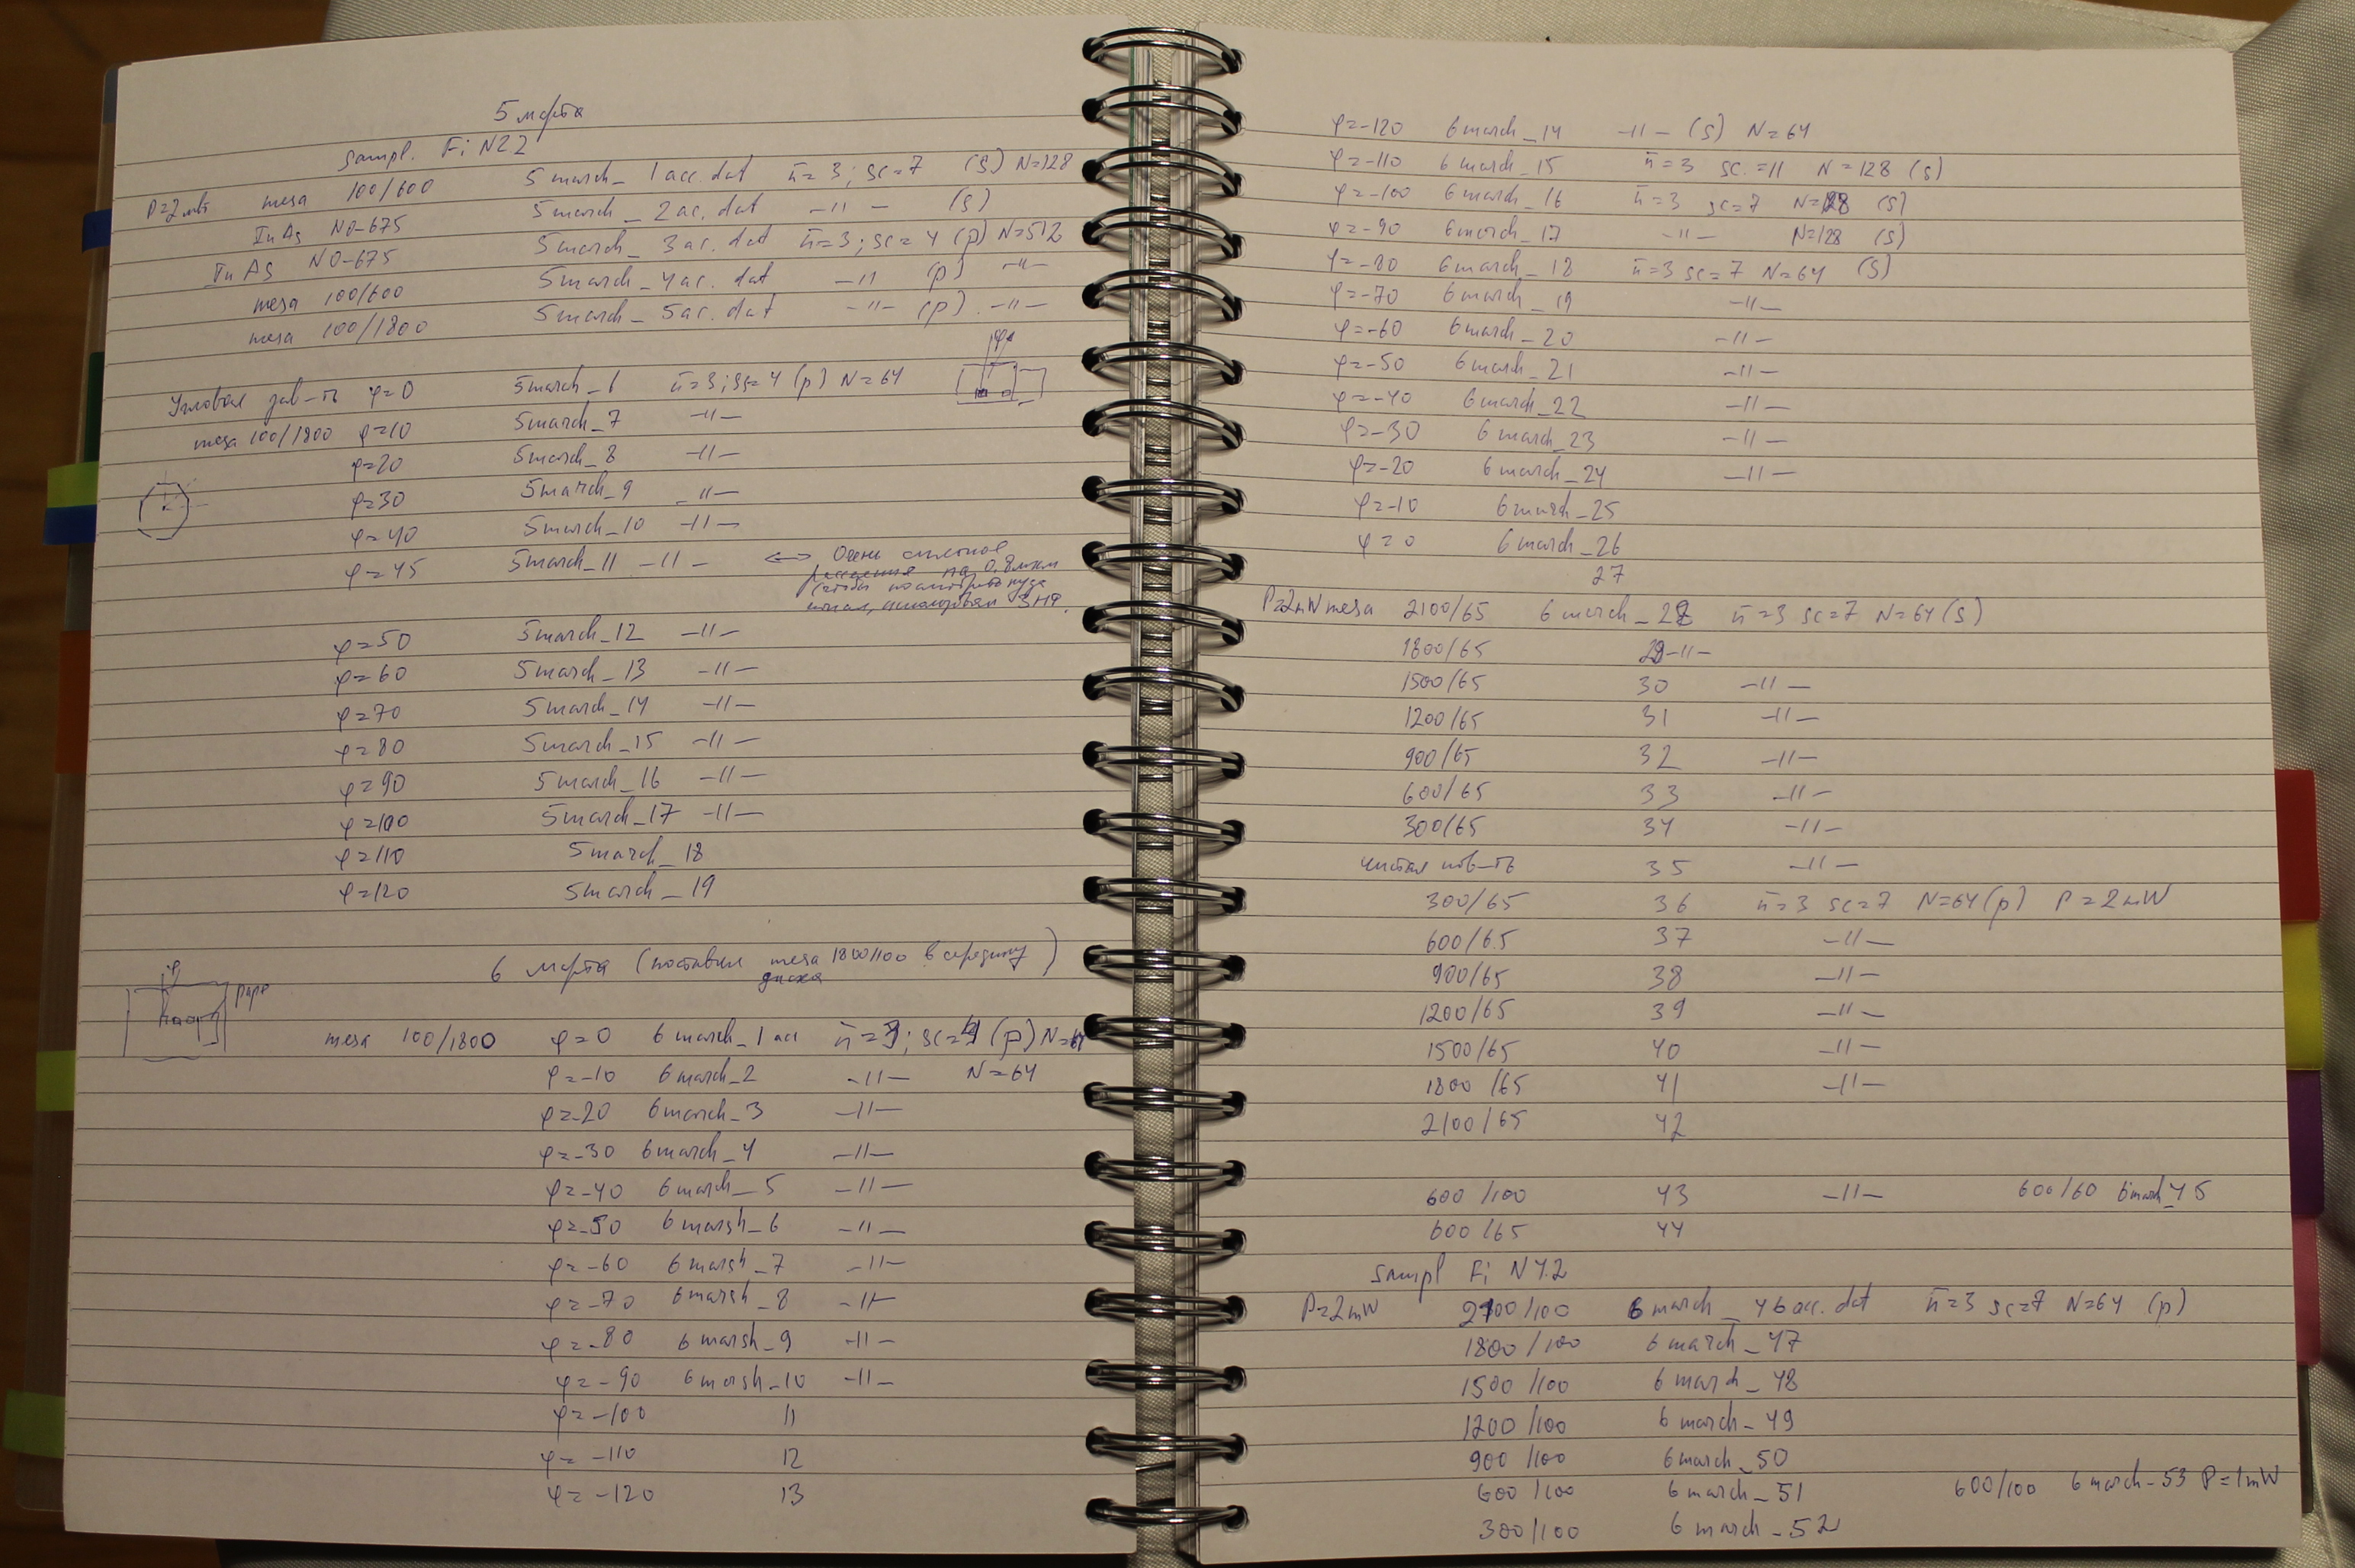 5 марта
Sampl. Fi N22
P=2mW mesa 100/600 5 march_ 1 acc. dat n̄=3; sc=7 (s) N=128
InAs NO-675 5 march_ 2 ac. dat -11- (s)
InAs NO-675 5 march_ 3 ac. dat n̄=3; sc=4 (p) N=512
mesa 100/600 5 march_ 4 ac. dat -11 (p) -11-
mesa 100/1800 5 march_ 5 ac. dat -11- (p) -11-
Угловая зав-ть φ=0 5 march_6 n̄=3; sc=4 (p) N=64
mesa 100/1800 φ=10 5 march_7 -11-
φ=20 5 march_8 -11-
φ=30 5 march_9 -11-
φ=40 5 march_10 -11-
φ=45 5 march_11 -11- <-> Очень
на 0,8мкм
φ=50 5 march_12 -11-
φ=60 5 march_13 -11-
φ=70 5 march_14 -11-
φ=80 5 march_15 -11-
φ=90 5 march_16 -11-
φ=100 5 march_17 -11-
φ=110 5 march_18
φ=120 5 march_19
6 марта (поставил mesa 1800/100 в середину)
диска
φ
mesa 100/1800 φ=0 6 march_1 acc (p) N=64
φ=-10 6 march_2 -11- N=64
φ=-20 6 march_3 -11-
φ=-30 6 march_4 -11-
φ=-40 6 march_5 -11-
φ=-50 6 marsh_6 -11-
φ=-60 6 marsh_7 -11-
φ=-70 6 marsh_8 -11-
φ=-80 6 marsh_9 -11-
φ=-90 6 marsh_10 -11-
φ=-100 11
φ=-110 12
φ=-120 13
φ=-120 6 march_14 -11- (s) N=64
φ=-110 6 march_15 n̄=3 sc.=11 N=128 (s)
φ=-100 6 march_16 n̄=3 sc=7 N=128 (s)
φ=-90 6 march_17 -11- N=128 (s)
φ=-80 6 march_18 n̄=3 sc=7 N=64 (s)
φ=-70 6 march_19 -11-
φ=-60 6 march_20 -11-
φ=-50 6 march_21 -11-
φ=-40 6 march_22 -11-
φ=-30 6 march_23 -11-
φ=-20 6 march_24 -11-
φ=-10 6 march_25
φ=0 6 march_26
27
P=2mW mesa 2100/65 6 march_28 n̄=3 sc=7 N=64 (s)
1800/65 29 -11-
1500/65 30 -11-
1200/65 31 -11-
900/65 32 -11-
600/65 33 -11-
300/65 34 -11-
чистая пов-ть 35 -11-
300/65 36 n̄=3 sc=7 N=64 (p) P=2mW
600/65 37 -11-
900/65 38 -11-
1200/65 39 -11-
1500/65 40 -11-
1800/65 41 -11-
2100/65 42
600/100 43 -11- 600/60 6 march_45
600/65 44
Sampl Fi N42
P=2mW 2100/100 6 march_46 acc. dat n̄=3 sc=7 N=64 (p)
1800/100 6 march_47
1500/100 6 march_48
1200/100 6 march_49
900/100 6 march_50
600/100 6 march_51 600/100 6 march-53 P=1mW
300/100 6 march_52